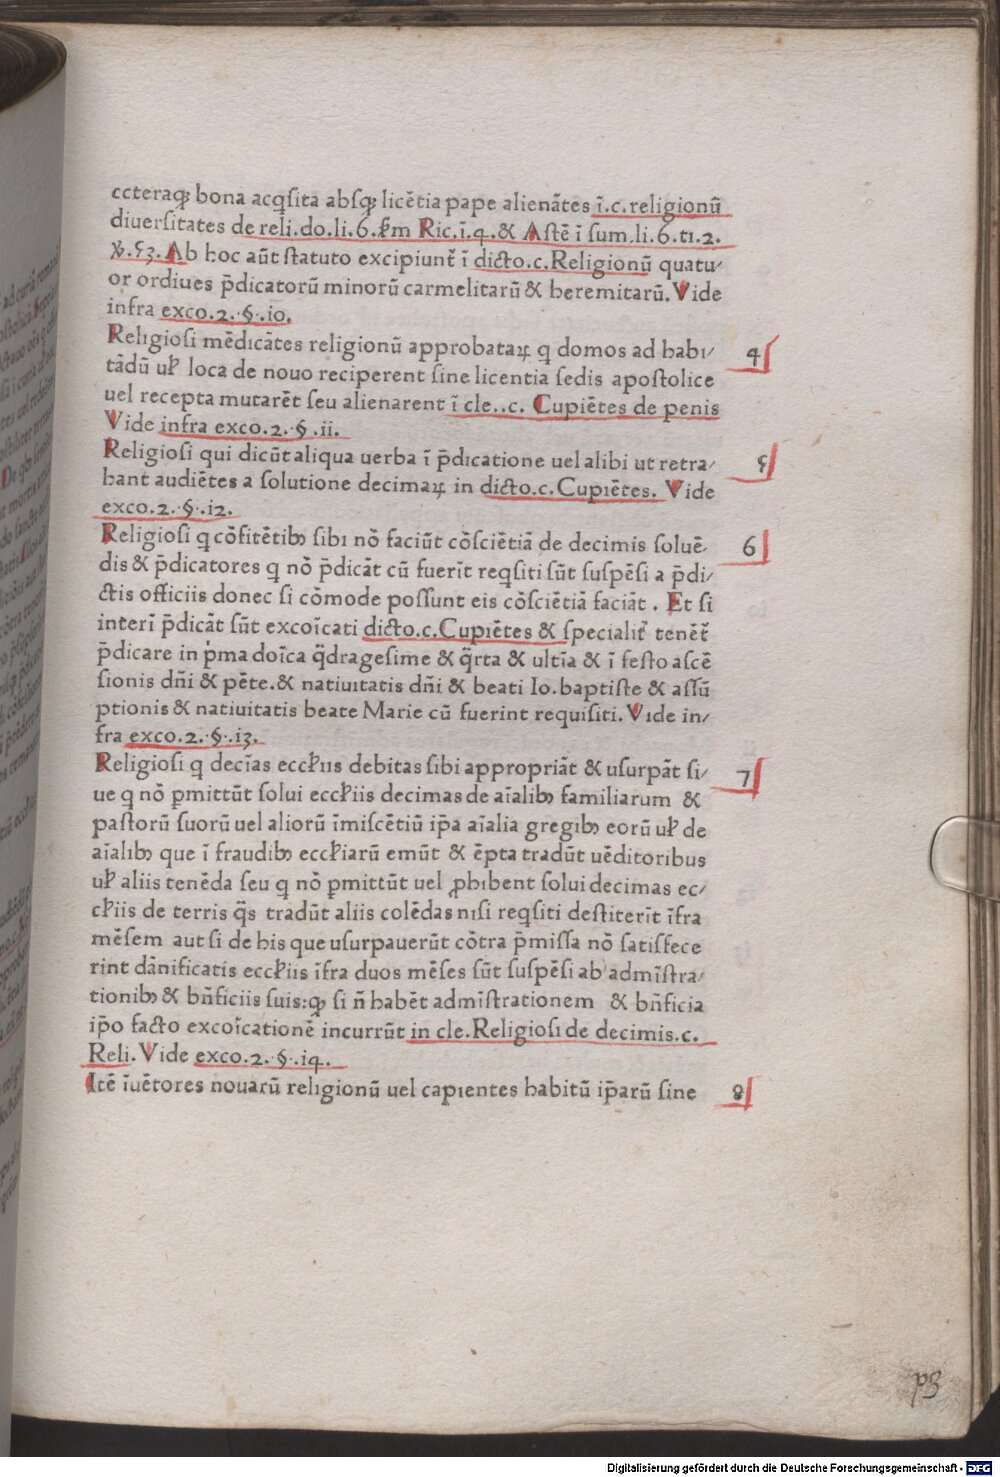 ccteraqꝫ bona acqsita absqꝫ licētia pape alienātes ī.c.religionū
diuersitates de reli.do.li.6.ẜm Ric.ī.4.& Astē ī sum.li.6.ti.2.
Ab hoc aūt statuto excipiunt̄ ī dicto.c.Religionū quatu/
or ordiues p̄dicatorū minorū carmelitarū & heremitarū. Vide
infra exco.2.§.10.
Religiosi mēdicātes religionū approbataꝝ q domos ad habi/
tādū uł loca de nouo reciperent sine licentia sedis apostolice
uel recepta mutarēt seu alienarent ī cle..c. Cupiētes de penis
Vide infra exco.2.§.ii.
4
Religiosi qui dicūt aliqua uerba ī p̄dicatione uel alibi ut retra/
hant audiētes a solutione decimaꝝ in dicto.c.Cupiētes. Vide
exco.2.§.12.
5
Religiosi q cōfitētibꝫ sibi nō faciūt cōsciētiā de decimis soluē-
dis & p̄dicatores q nō p̄dicāt cū fuerīt reqsiti sūt suspēsi a p̄di/
ctis officiis donec si cōmode possunt eis cōsciētiā faciāt . Et si
interī p̄dicāt sūt excoīcati dicto.c.Cupiētes & specialit̄ tenēt̄
p̄dicare in pma doīca q̄dragesime & q̄rta & ultīa & ī festo ascē
sionis dn̄i & pēte.& natiuitatis dn̄i & beati Io.baptiste & assū
ptionis & natiuitatis beate Marie cū fuerint requisiti. Vide in/
fra exco.2.§.13.
6
Religiosi q decīas eccłiis debitas sibi appropriāt & usurpāt si/
ue q nō ꝑmittūt solui eccłiis decimas de aīalibꝫ familiarum &
pastorū suorū uel aliorū īmiscētiū ip̄a aīalia gregibꝫ eorū uł de
aīalibꝫ que ī fraudibꝫ eccłiarū emūt & ēpta tradūt uēditoribus
uł aliis tenēda seu q nō ꝑmittūt uel ꝓhibent solui decimas ec/
cłiis de terris q̄s tradūt aliis colēdas nisi reqsiti destiterīt īfra
mēsem aut si de his que usurpauerūt cōtra p̄missa nō satisfece
rint dānificatis eccłiis īfra duos mēses sūt suspēsi ab admīstra/
tionibꝫ & bn̄ficiis suis:qꝫ si n̄ habēt admīstrationem & bn̄ficia
ip̄o facto excoīcationē incurrūt in cle.Religiosi de decimis.c.
Reli. Vide exco.2.§.14.
7
Itē īuētores nouarū religionū uel capientes habitū ip̄arū sine
8
Digitalisierung gefördert durch die Deutsche Forschungsgemeinschaft - DFG